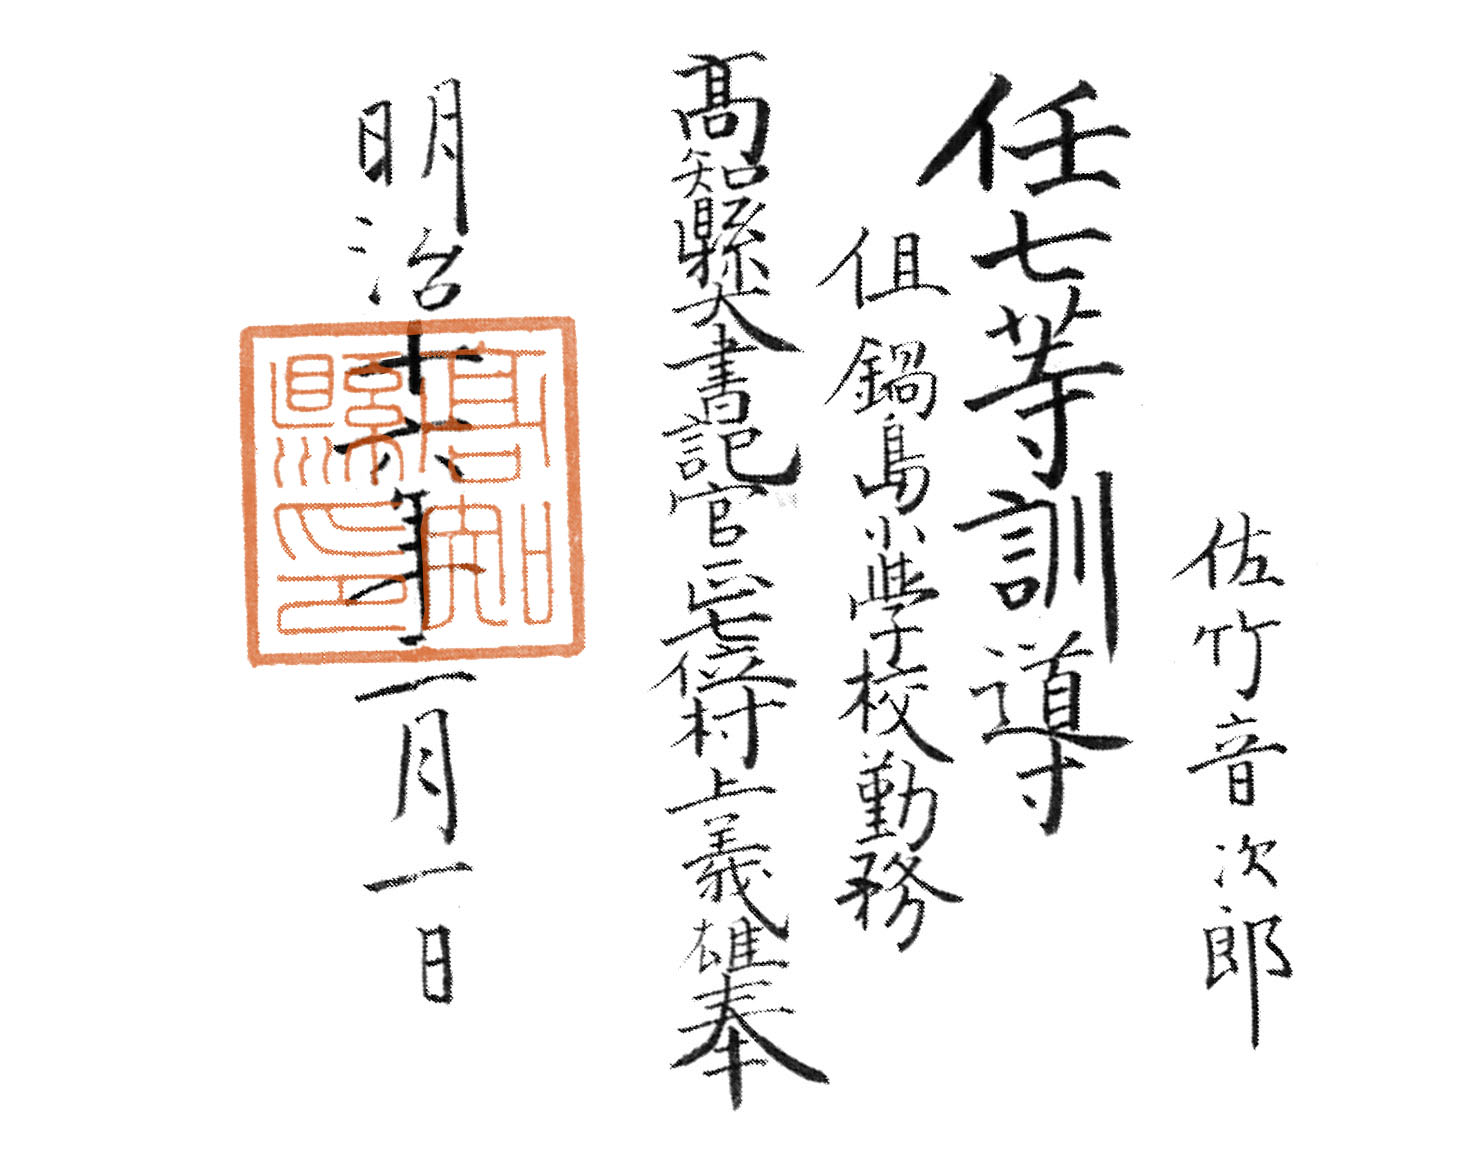 佐竹音次郎
任七等訓導
伹鍋島小學校勤務
高知縣大書記官正七位村上義雄奉
明治十六年一月一日
高知縣印